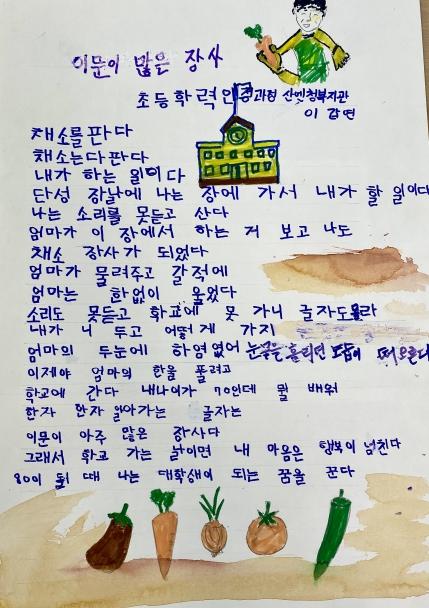 이문이 많은 장사
초등학력인정과정 산엣청복지관
이 감연
채소를 판다
채소는 다 판다
내가 하는 일이다
단성 장날에 나는 장에 가서 내가 할 일이다
나는 소리를 못듣고 산다
엄마가 이 장에서 하는 거 보고 나도
채소 장사가 되었다
엄마가 물려주고 갈적에
엄마는 한없이 울었다
소리도 못듣고 학교에 못 가니 글자도몰라
내가 니 두고 어떻게 가지
엄마의 두눈에 하염없어 눈물을 흘리던 모습이 떠오른다
이제야 엄마의 한을 풀려고
학교에 간다 내나이가 70인데 뭘 배워
한자 한자 알아가는 글자는
이문이 아주 많은 장사다
그래서 학교 가는 날이면 내 마음은 행복이 넘친다
80이 될 때 나는 대학생이 되는 꿈을 꾼다